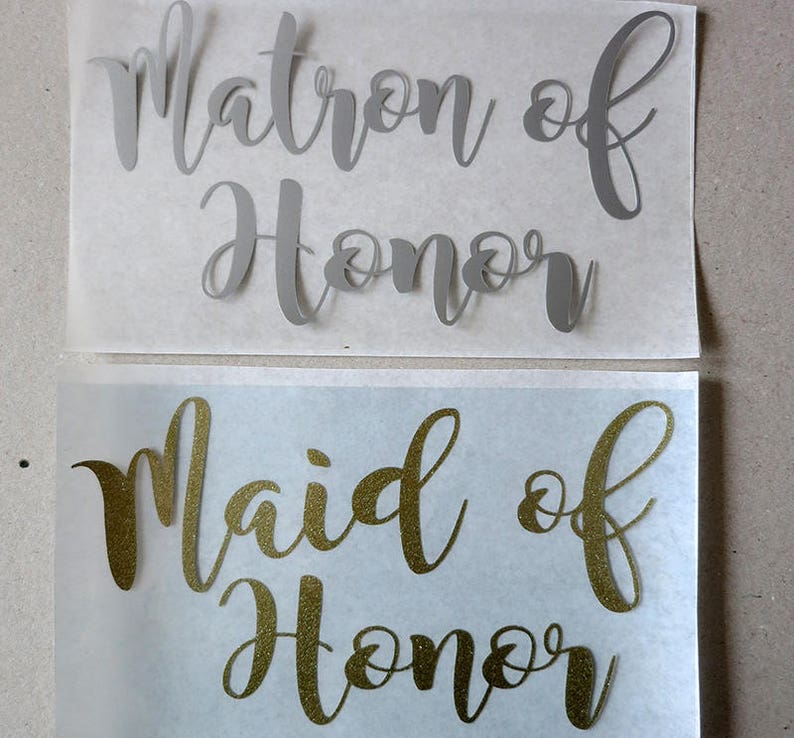 Matron of
Honor
Maid of
Honor